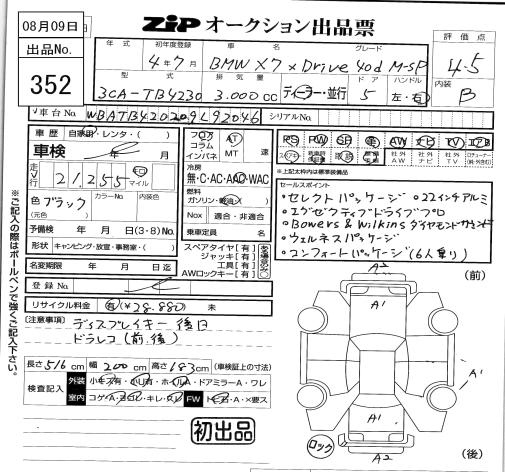 08月09日
出品No.
352
ZIP オークション出品票
年式 初年度登録 車名 グレード
4年7月 BMW X7 xDrive 40d M-SP
評価点
4.5
内装
B
型式 排気量 ドア ハンドル
3CA-TB4230 3.000cc ディーラー・並行 5 左・右
車台No. WBATB420209L92046 シリアルNo.
車歴 自家用・レンタ・( )
車検 年 月
走行 21.255 キロ マイル
色 ブラック カラーNo. 内装色
(元色)
予備検 年 月 日(3・8)No.
形状 キャンピング・放送・事務室・( )
名変期限 年 月 日迄
登録No.
リサイクル料金 有(¥28.880) 未
フロア コラム インパネ
AT MT 速
冷房
無・C・AC・AAC・WAC
燃料
ガソリン・軽油・( )
Nox 適合・非適合
乗車定員 名
スペアタイヤ[有]
ジャッキ[有]
工具[有]
AWロックキー[有]
PS PW SR 革 AW ナビ TV エアB
スマートキー 取説 社外AW 社外ナビ 社外TV
※上記太枠内は標準装備品
セールスポイント
・セレクトパッケージ ・22インチアルミ
・エグゼクティブドライブプロ
・Bowers & Wilkins ダイヤモンドサウンド
・ウェルネスパッケージ
・コンフォートパッケージ(6人乗り)
[注意事項] ディスプレイキー後日
ドラレコ(前.後)
長さ516cm 幅200cm 高さ183cm (車検証上の寸法)
検査記入
外装 小キズ有・小凹有・ホイルA・ドアミラーA・ワレ
室内 コゲA・ヨゴレ・キレ・スレ FW トビ石・A・×要ス
初出品
※ご記入の際はボールペンで強くご記入下さい。
(前)
A2
A1
A1
A1
A1
ロック
A2
(後)